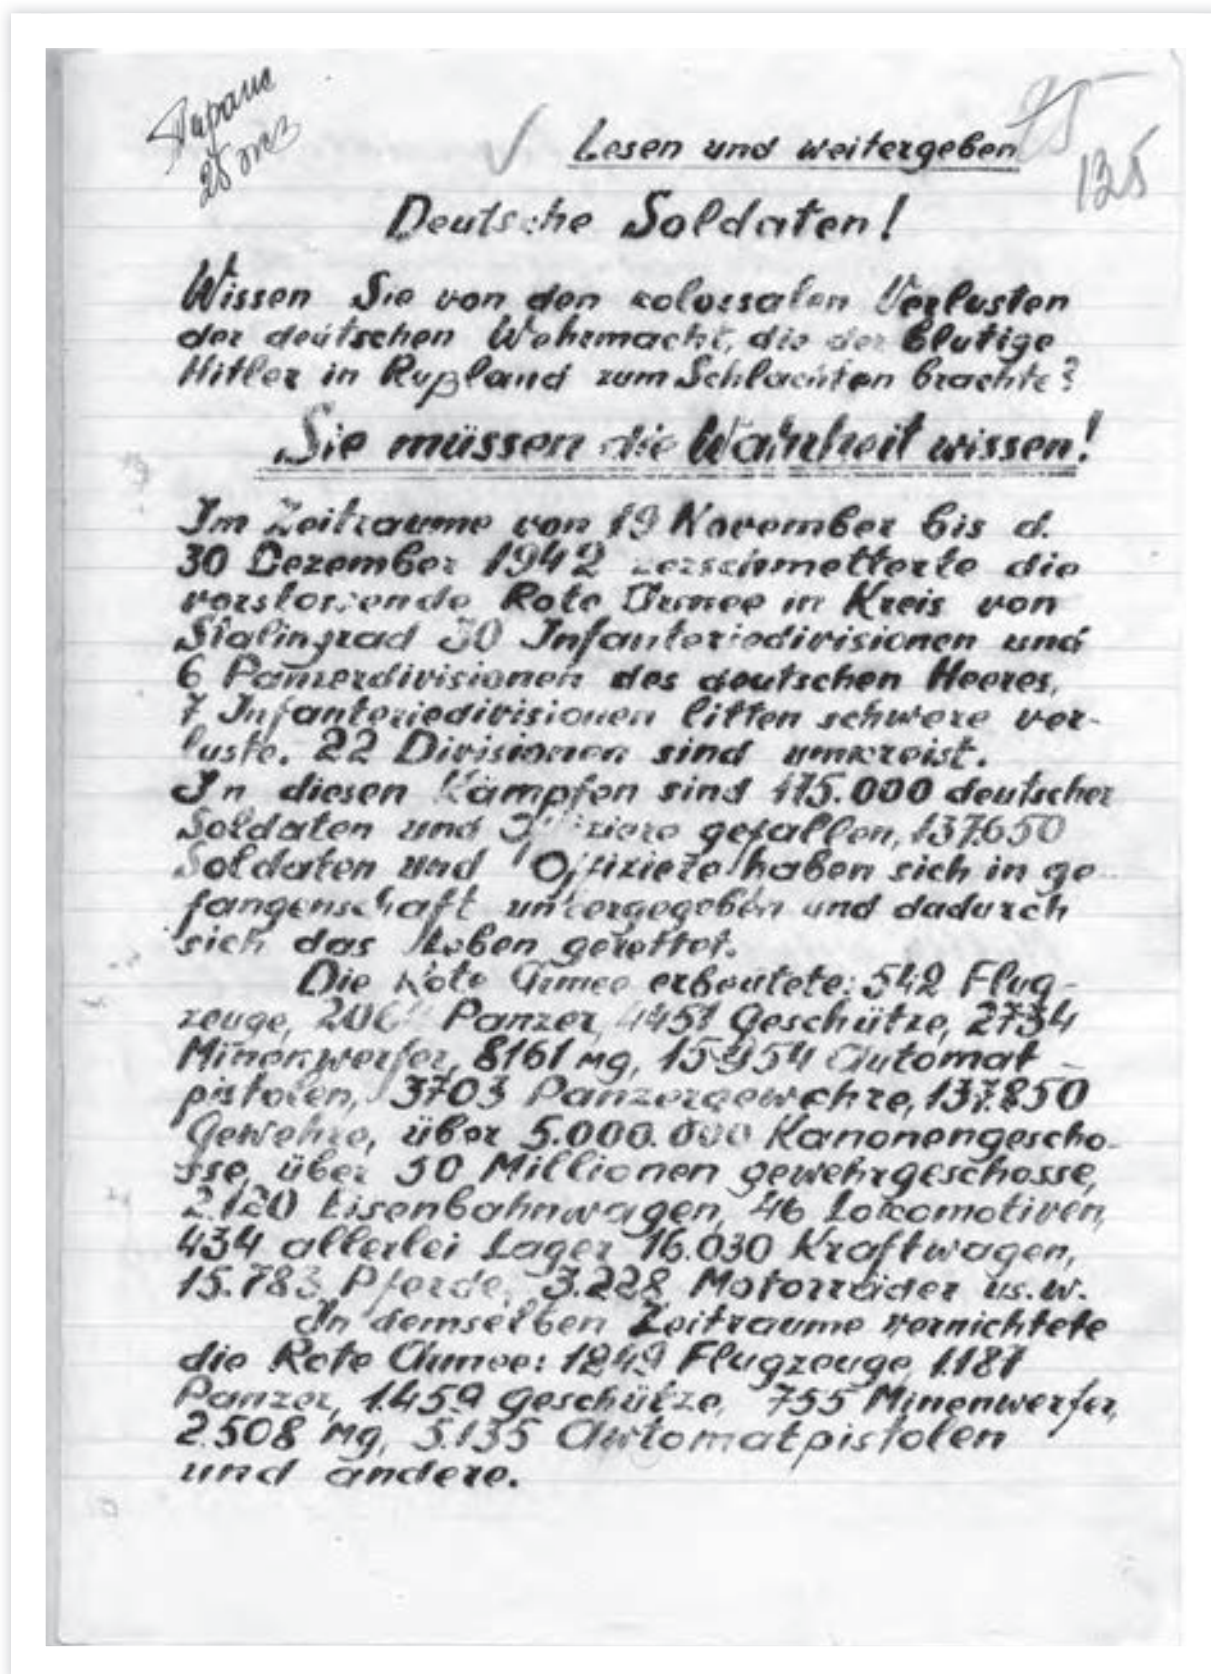 Тираж
25 экз
125
Lesen und weitergeben
Deutsche Soldaten!
Wissen Sie von den kolossalen Verlusten
der deutschen Wehrmacht, die der Blutige
Hitler in Rußland zum Schlachten brachte?
Sie müssen die Wahrheit wissen!
Im Zeitraume von 19 November bis d.
30 Dezember 1942 zerschmetterte die
vorstossende Rote Armee in Kreis von
Stalingrad 30 Infanteriedivisionen und
6 Panzerdivisionen des deutschen Heeres,
7 Infanteriedivisionen litten schwere ver-
luste. 22 Divisionen sind umkreist.
In diesen Kämpfen sind 175.000 deutscher
Soldaten und Offiziere gefallen, 137.650
Soldaten und Offiziere haben sich in ge-
fangenschaft untergegeben und dadurch
sich das Leben gerettet.
Die Rote Armee erbeutete: 542 Flug-
zeuge, Panzer, 4451 Geschütze, 2734
Minenwerfer, 8161 Mg, 15.954 Automat-
pistolen, 3703 Panzergewehre, 137.850
Gewehre, über 5.000.000 Kanonengescho-
sse, über 50 Millionen gewehrgeschosse,
2.120 Eisenbahnwagen, 46 Lokomotiven,
434 allerlei Lager 16.030 Kraftwagen,
15.783 Pferde, 3.228 Motorräder us.w.
In demselben Zeitraume vernichtete
die Rote Armee: 1249 Flugzeuge, 1.187
Panzer, 1.459 Geschütze, 755 Minenwerfer,
2.508 Mg, 5.135 Automatpistolen
und andere.